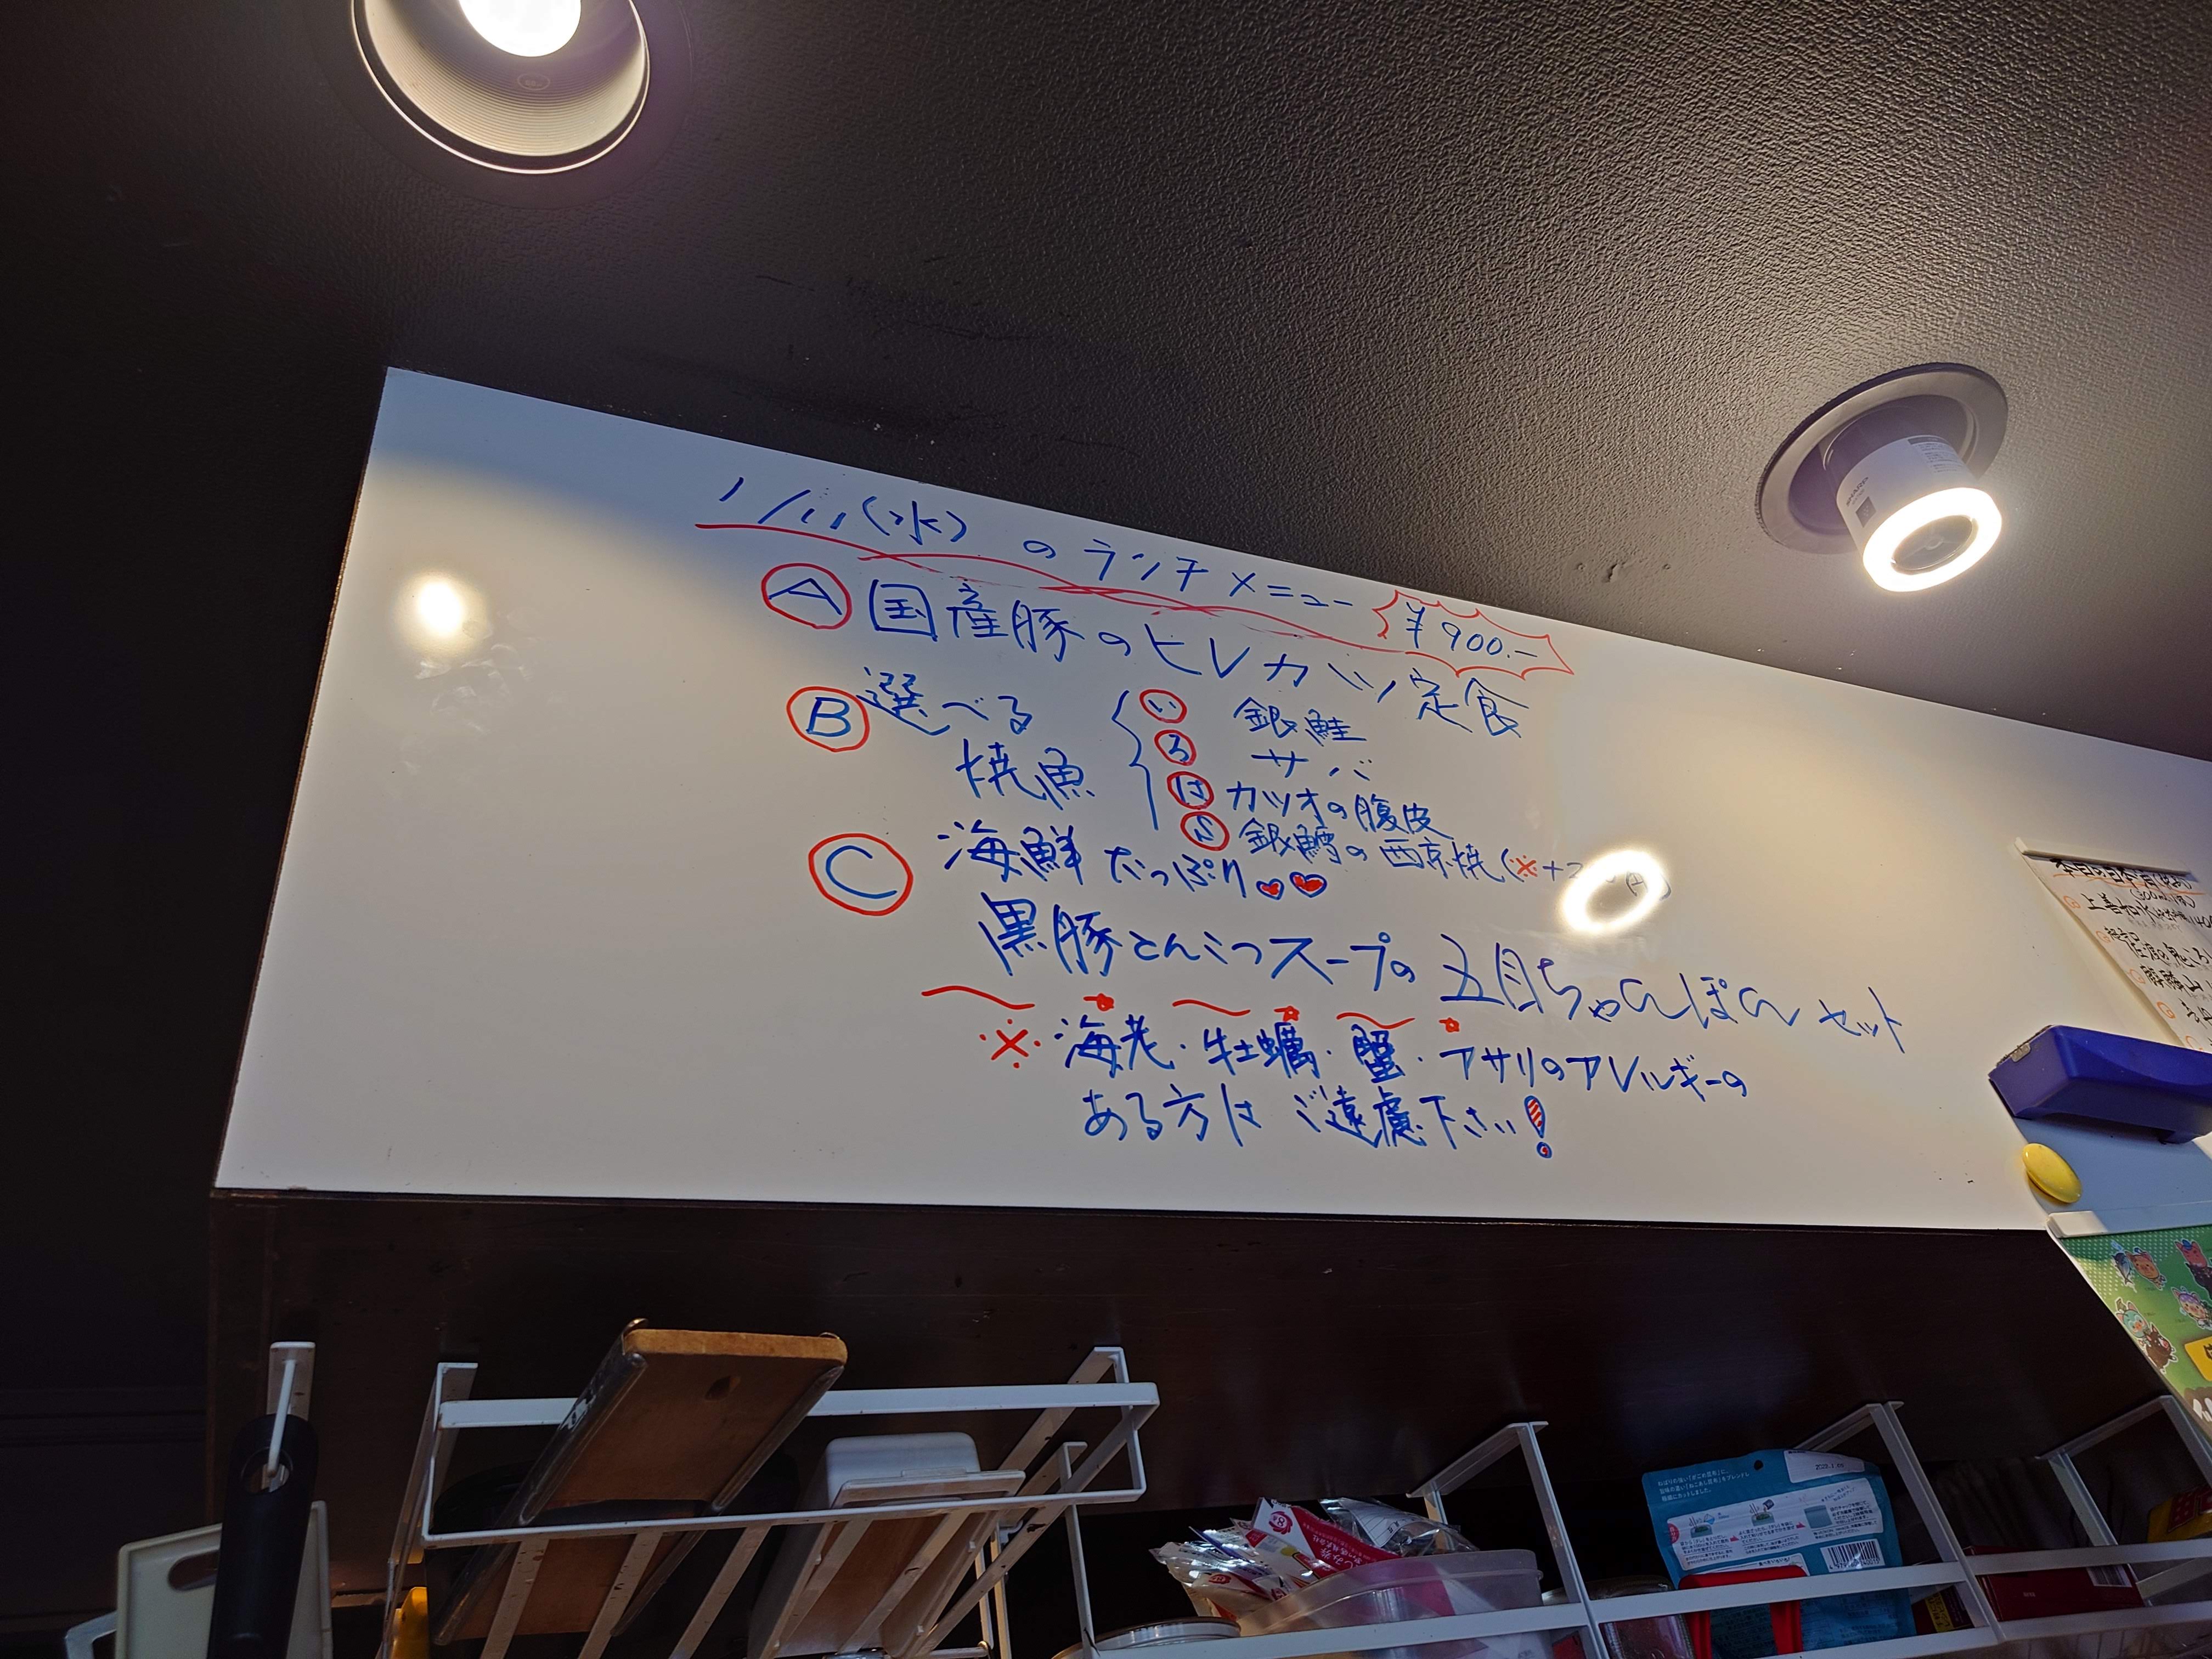 1/11(水)のランチメニュー ¥900.-
Ⓐ 国産豚のヒレカツ定食
Ⓑ 選べる焼魚
い 銀鮭
ろ サバ
は カツオの腹皮
に 銀鱈の西京焼(※+
Ⓒ 海鮮たっぷり♥♥
黒豚とんこつスープの 五目ちゃんぽんセット
※海老・牡蠣・蟹・アサリのアレルギーの
ある方はご遠慮下さい!